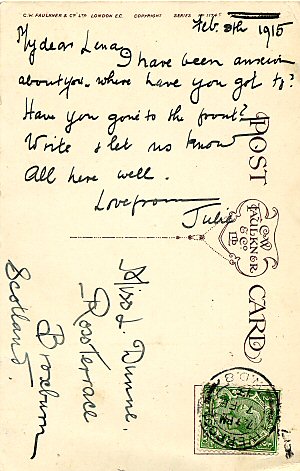 C.W. FAULKNER & Co. LTD. LONDON E.C. COPYRIGHT SERIES
Feb. 8th 1915
My dear Lena,
I have been anxious
about you. where have you got to?
Have you gone to the front?
Write & let us know
All here well.
Love from
Julie
POST CARD
C.W.
FAULKNER
& Co.
LTD.
Miss L. Dunne.
Ross Terrace
Broxburn
Scotland.